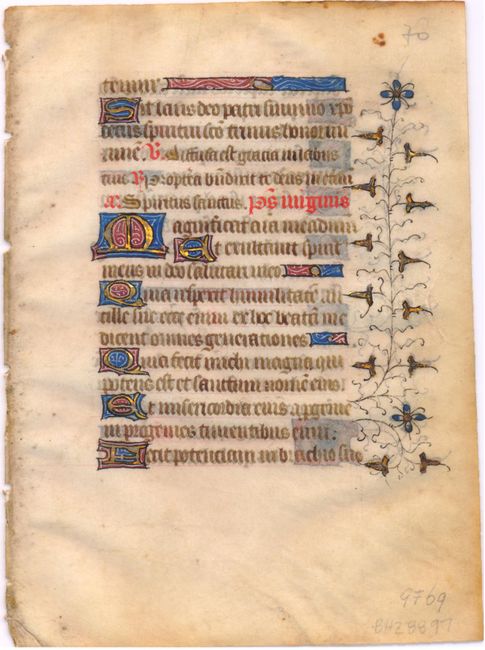 70
Sit laus deo patri summo xpo
decus spiritui sco trinus honor un
℣. Diffusa est gracia in labiis
tuis ℟ Propterea bndixit te deus in etnu
a. Spiritus sanctus. ps uirginis
Magnificat aīa mea dnm
Et exultauit spirit
meus in deo salutari meo
Quia respexit humilitatē an
cille sue ecce enim ex hoc beatā me
dicent omnes generationes
Quia fecit michi magna qui
potens est et sanctum nomē eius
Et misericordia eius a progenie
in progenies timentibus eum
Fecit potenciam in brachio suo
9769
BH28897